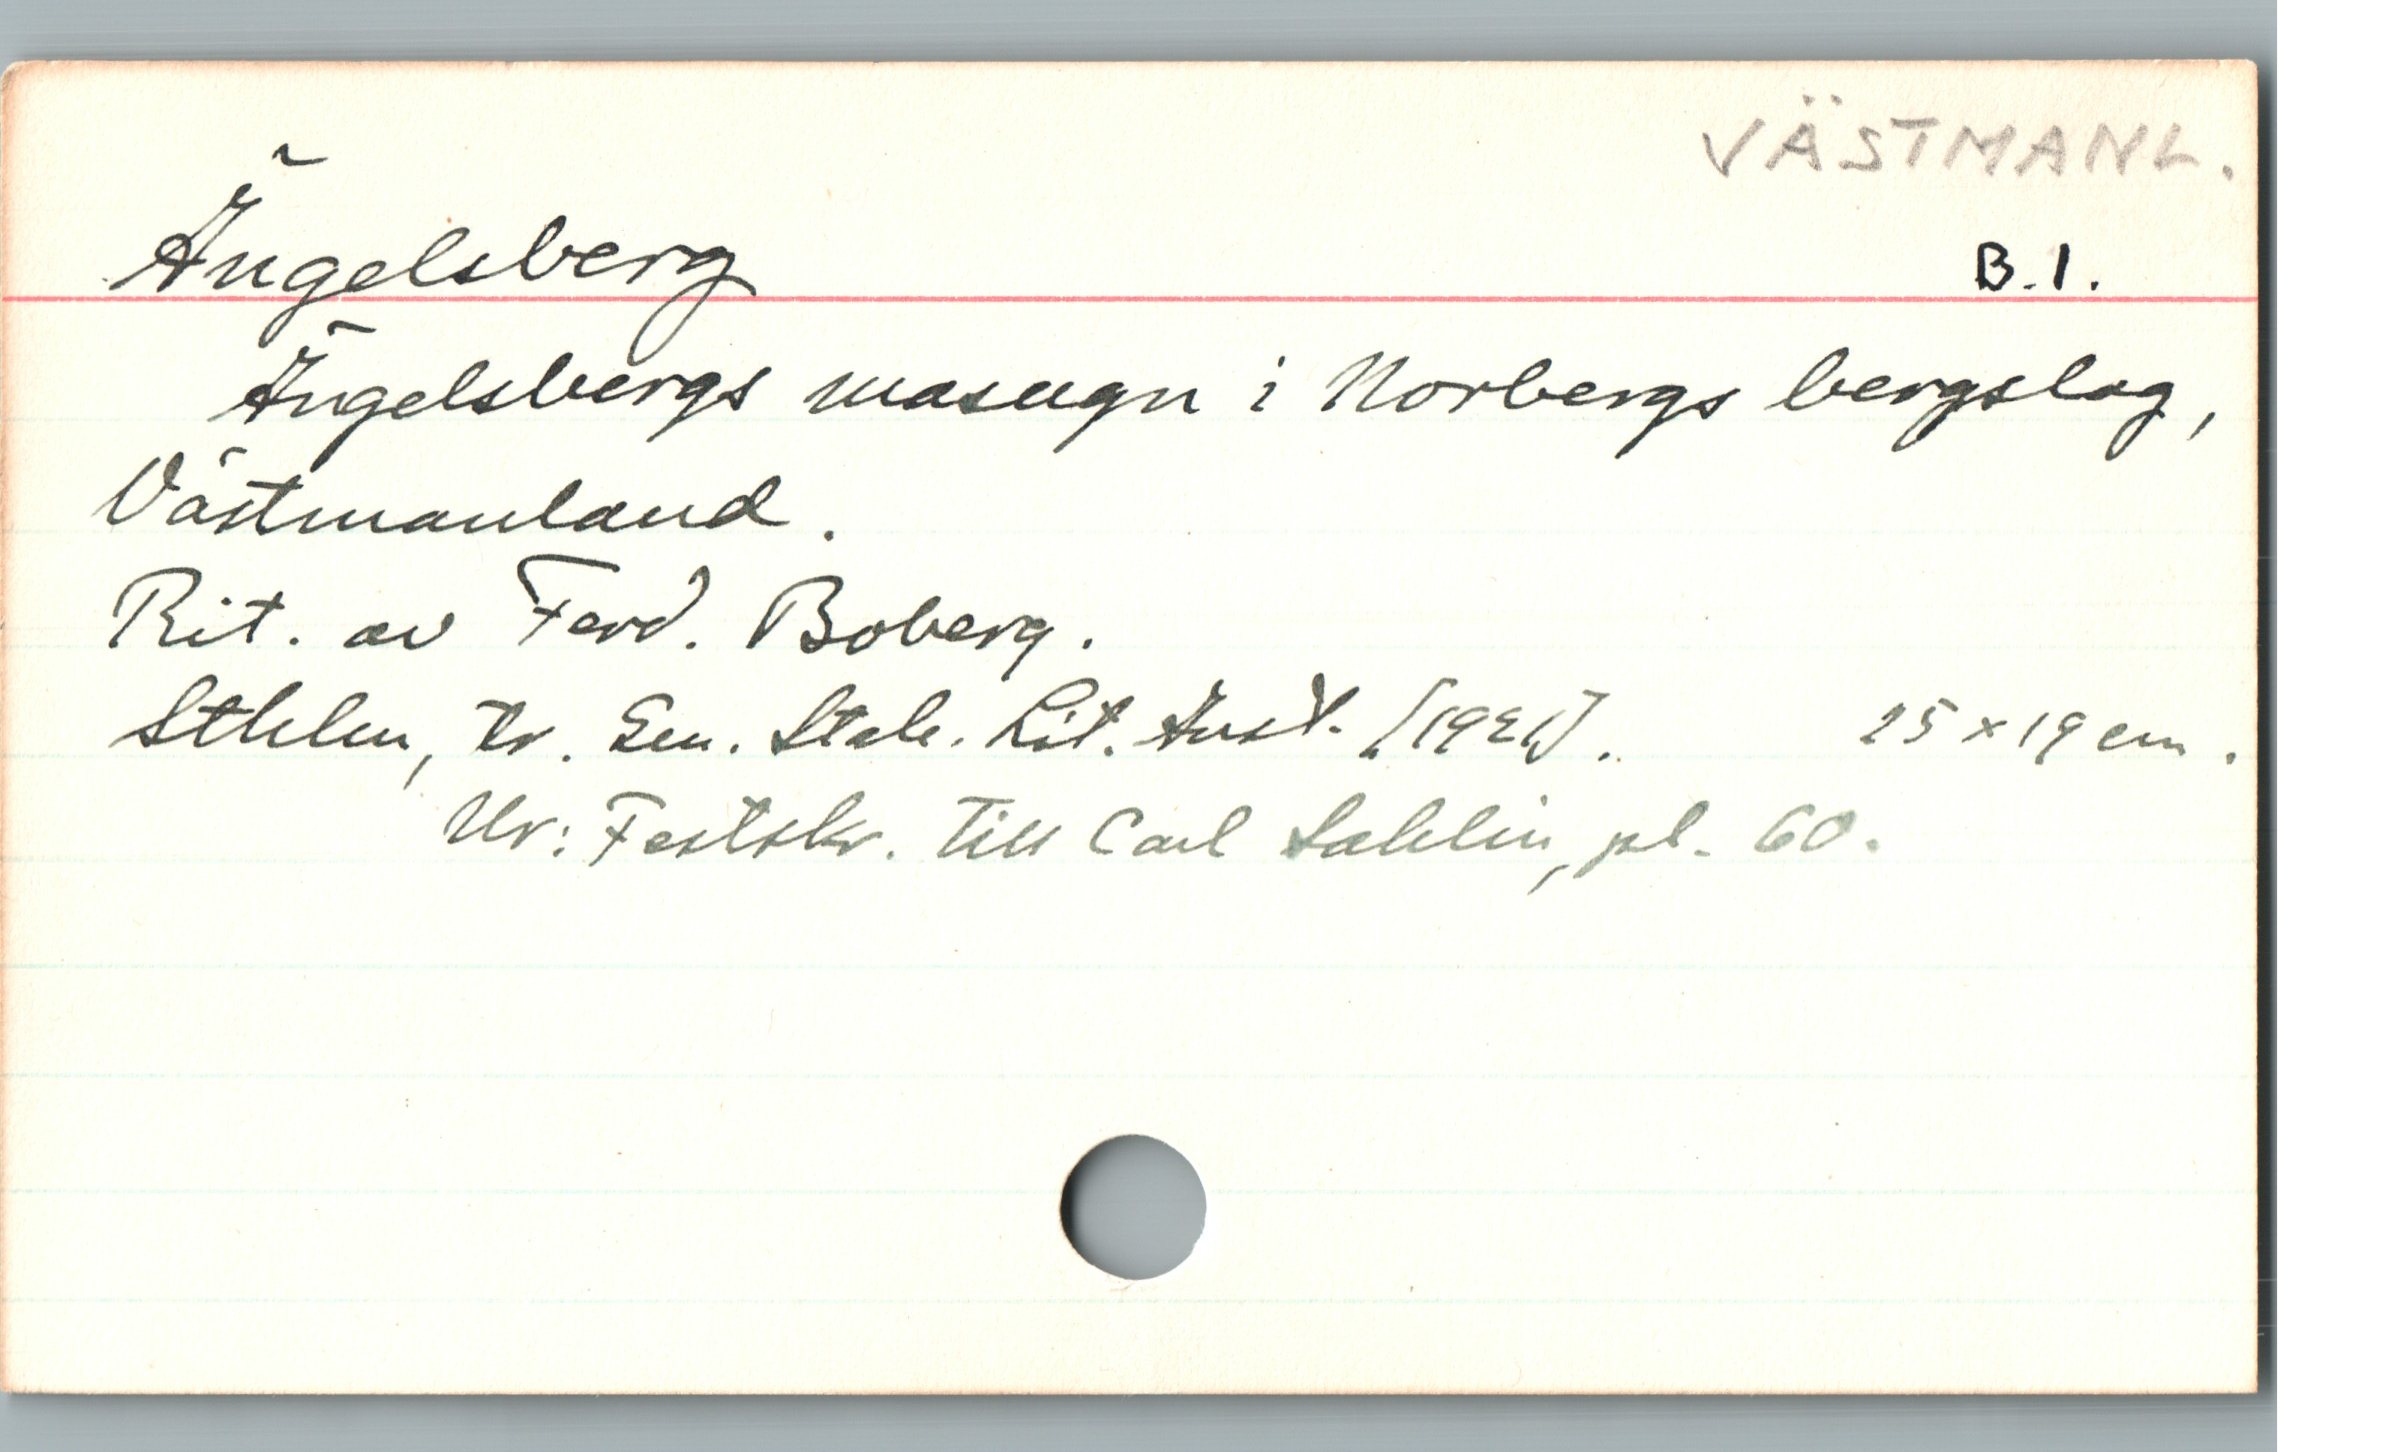 VÄSTMANL.
Ängelsberg B.1.
Ängelsbergs masugn i Norbergs bergslag,
Västmanland.
Rit. av Ferd. Boberg.
Sthlm, tr. Gen. Stab. Lit. Anst. [1921]. 25 x 19 cm.
Ur: Festskr. till Carl Sahlin, pl. 60.